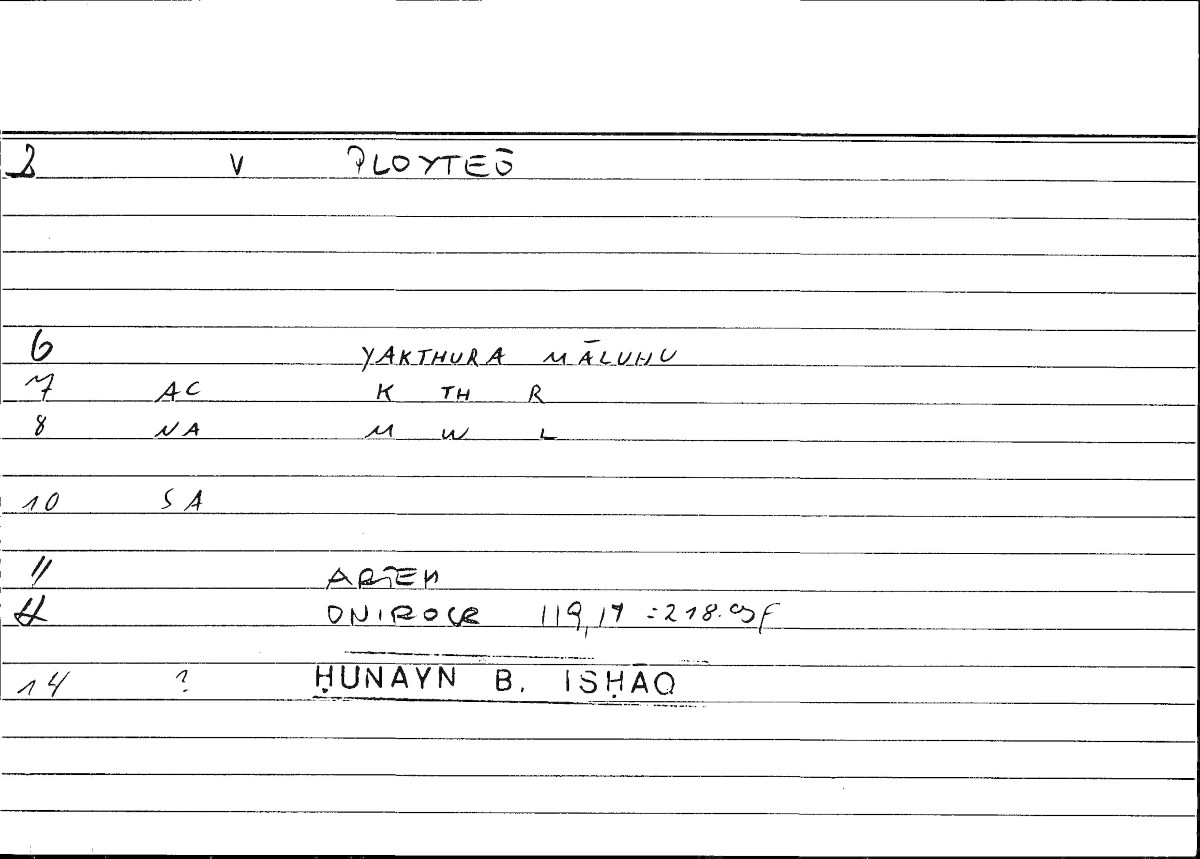 2 V PLOYTEŌ
6 YAKTHURA MĀLUHU
7 AC K TH R
8 NA M W L
10 SA
11 ARTEM
ONIROCR 119,17 =218.9sf
14 ? ḤUNAYN B. ISḤĀQ